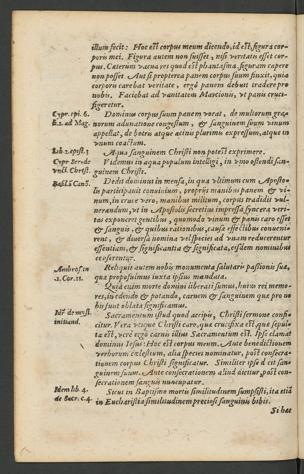 illum fecit: Hoc est corpus meum dicendo, id est, figura corporis mei. Figura autem non fuisset, nisi veritatis esset cor-
pus. Cæterum vacua res quod est phantasma, figuram capere
non posset. Aut si propterea panem corpus suum finxit, quia
corporis carebat veritate, ergò panem debuit tradere pro
nobis. Faciebat ad vanitatem Marcionis, vt panis cruci-
figeretur.
Cypr. epi. 6.
li. 2. ad Mag.
Dominus corpus suum panem vocat, de multorum gra-
norum adunatione congestum, & sanguinem suum vinum
appellat, de botris atque acinis plurimis expressum, atque in
vnum coactum.
Lib. 2. epist. 3
Aqua sanguinem Christi non potest exprimere.
Cypr
Videmus in aqua populum intelligi, in vino ostendi san-
guinem Christi.
Dedit dominus in mensa, in qua vltimum cum Aposto-
lis participauit conuiuium, propriis manibus panem & vi-
num, in cruce vero, manibus militum, corpus tradidit vul-
nerandum, vt in Apostolis secretius impressa syncera veri-
tas exponeret gentibus, quomodo vinum & panis caro esset
& sanguis, & quibus rationibus, causæ effectibus conueni-
rent, & diuersa nomina vel species ad vnam reducerentur
essentiam, & significantia & significata, eisdem nominibus
censerentur.
Ambros. in
1. Cor. 11.
Reliquit autem nobis monumenta salutaris passionis suæ,
quæ proposuimus iuxta ipsius mandata.
Quia enim morte domini liberati sumus, huius rei memo-
res, in edendo & potando, carnem & sanguinem quæ pro no-
bis sunt oblata significamus.
Sacramentum istud quod accipis, Christi sermone confi-
citur. Vera vtique Christi caro, quæ crucifixa est, quæ sepul-
ta est, verè ergò carnis illius Sacramentum est. Ipse clamat
dominus Iesus: Hoc est corpus meum. Ante benedictionem
verborum cœlestium, alia species nominatur, post consecra-
tionem corpus Christi significatur. Similiter ipse dicit san-
guinem suum. Ante consecrationem aliud dicitur, post con-
secrationem sanguis nuncupatur.
Idem lib. 4.
de Sacr. c. 4.
Sicut in Baptismo mortis similitudinem sumpsisti, ita etiã
in Eucharistia similitudinem preciosi sanguinis bibis.